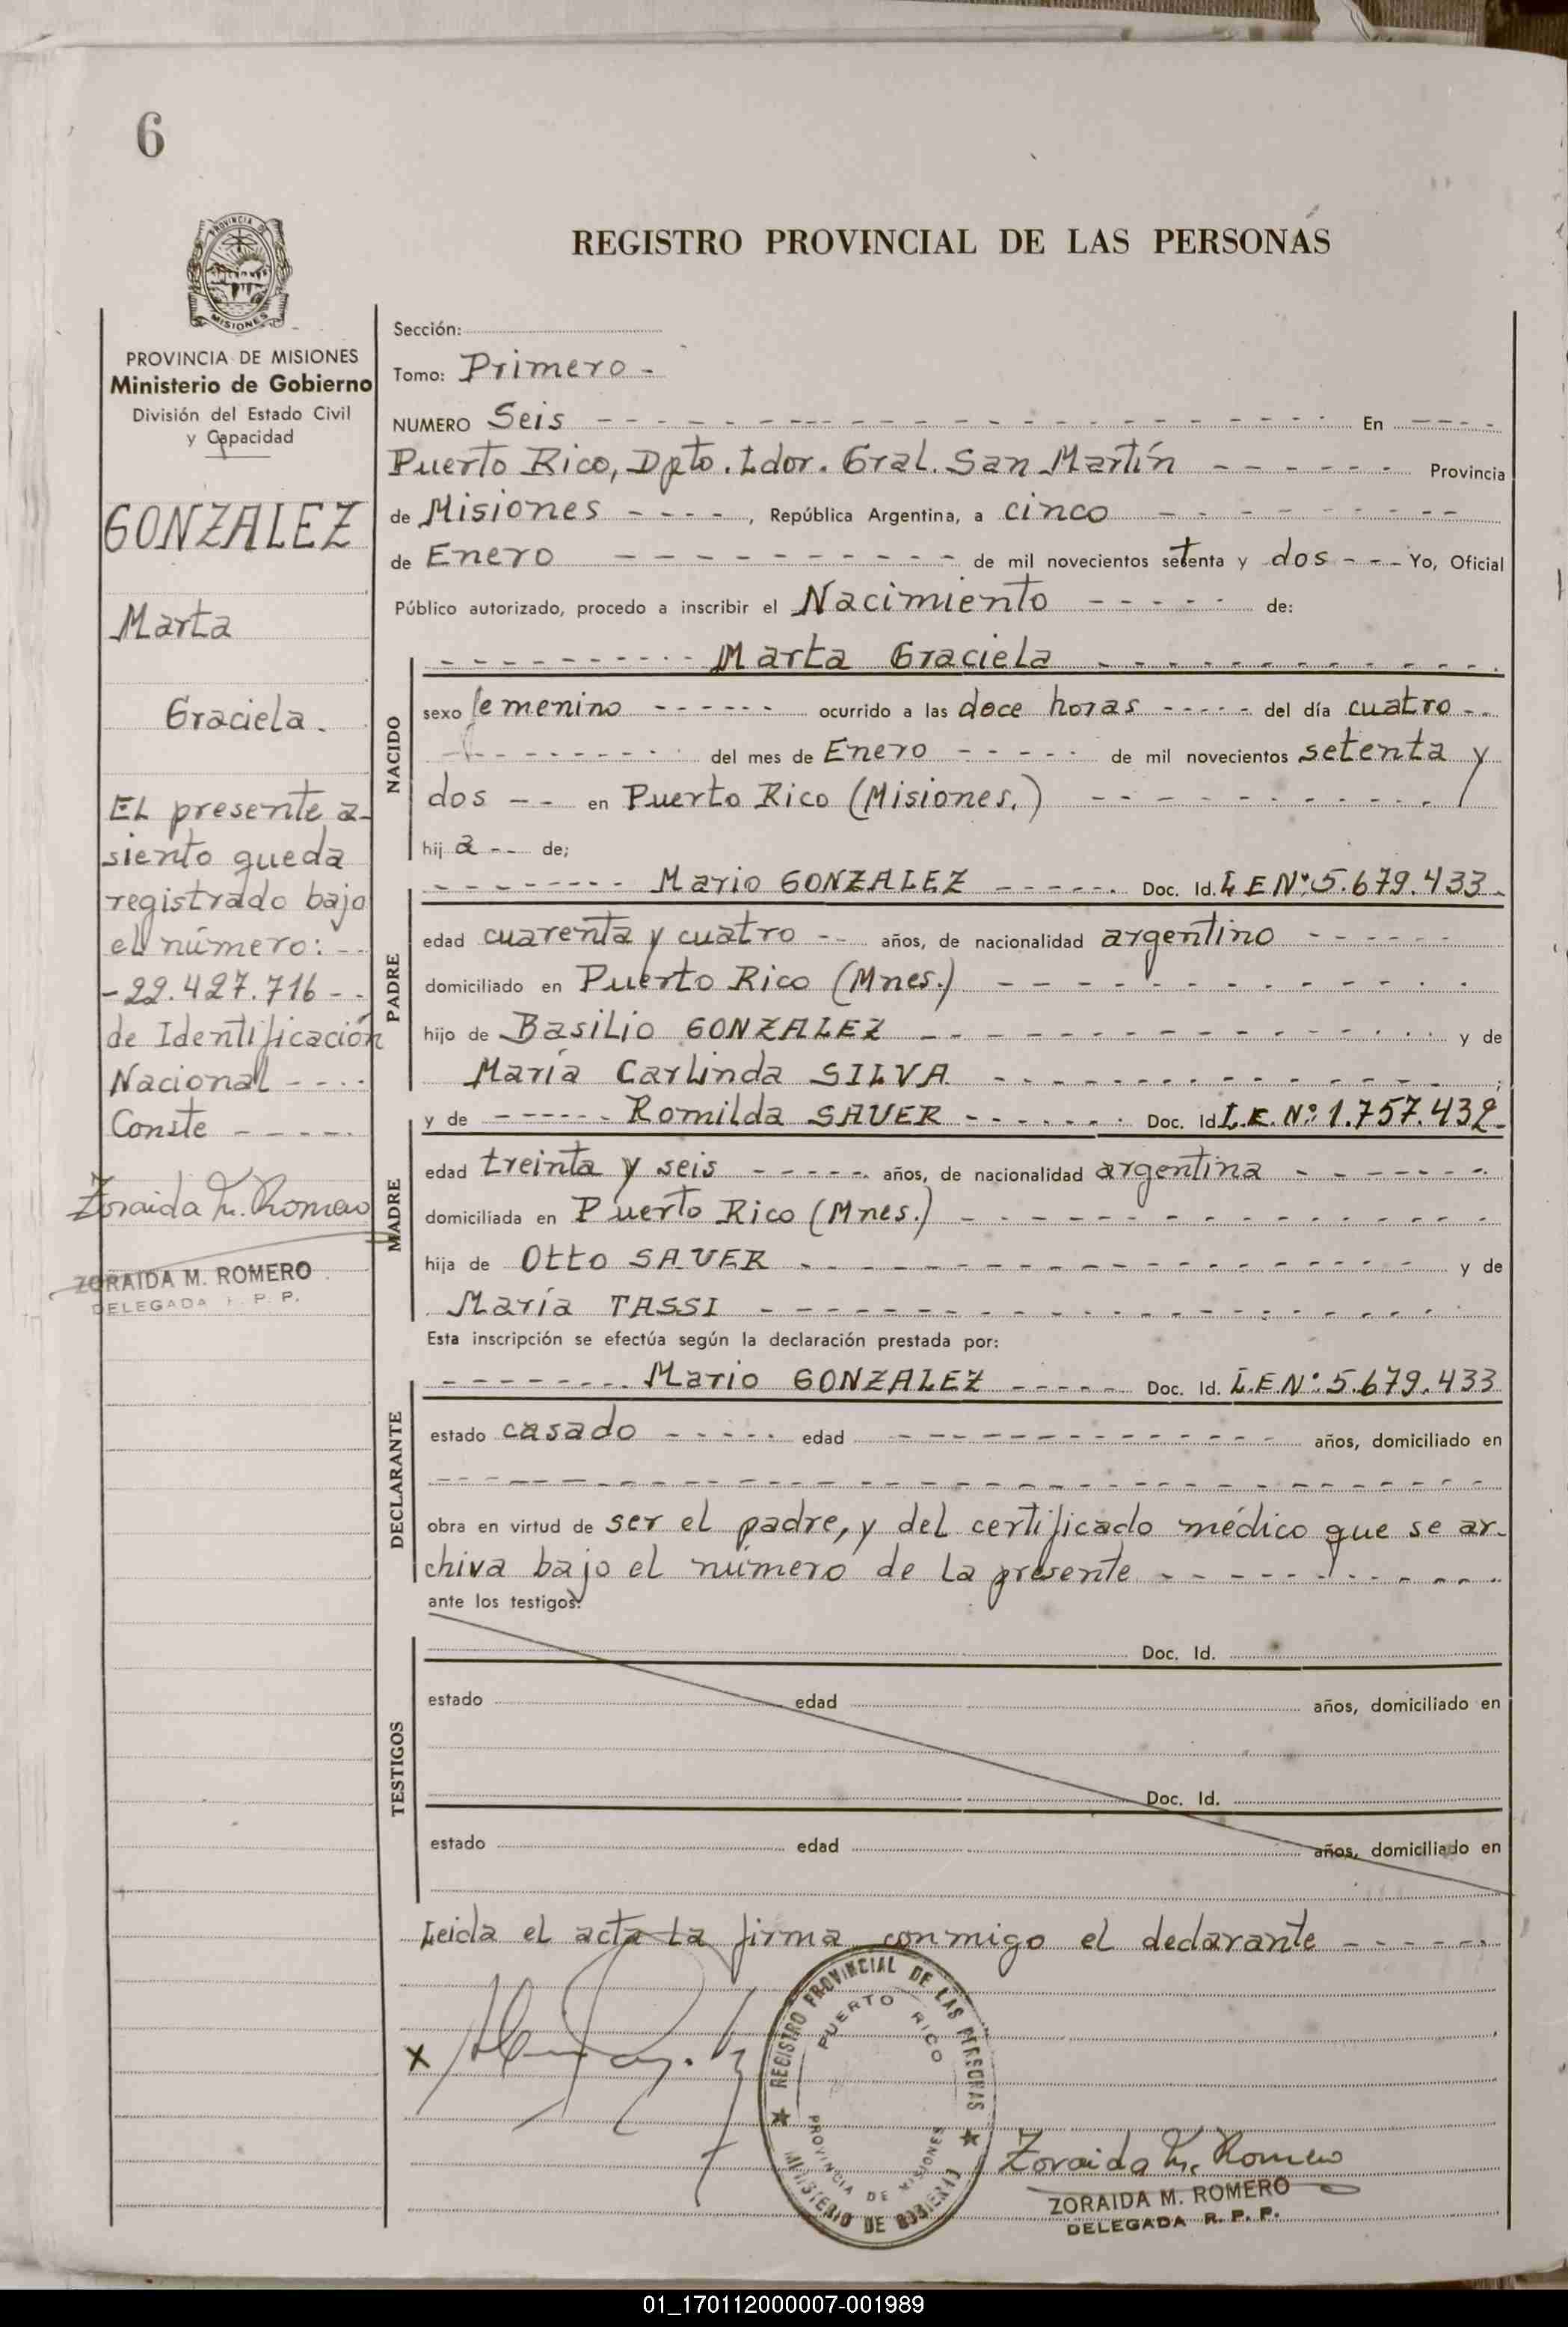 6
PROVINCIA DE
MISIONES
PROVINCIA DE MISIONES
Ministerio de Gobierno
División del Estado Civil
y Capacidad
GONZALEZ
Marta
Graciela.
El presente a-
siento queda
registrado bajo
el número: --
-22.427.716--
de Identificación
Nacional ----
Conste -----
Zoraida M. Romero
ZORAIDA M. ROMERO
DELEGADA R. P. P.
REGISTRO PROVINCIAL DE LAS PERSONAS
Sección:
Tomo: Primero -
NUMERO Seis - - - En - - - -
Puerto Rico, Dpto. Ldor. Gral. San Martín - - - Provincia
de Misiones - - - -, República Argentina, a cinco - - -
de Enero - - - de mil novecientos setenta y dos - - - Yo, Oficial
Público autorizado, procedo a inscribir el Nacimiento - - - de:
NACIDO
- - - Marta Graciela - - -
sexo femenino - - - ocurrido a las doce horas - - - del día cuatro - -
- - - del mes de Enero - - - de mil novecientos setenta y
dos - - en Puerto Rico (Misiones.) - - -
hij a - - de;
PADRE
- - - Mario GONZALEZ - - - Doc. Id. L E Nº: 5.679.433-
edad cuarenta y cuatro - - años, de nacionalidad argentino - - -
domiciliado en Puerto Rico (Mnes.) - - -
hijo de Basilio GONZALEZ - - - y de
María Carlinda SILVA - - - ;
MADRE
y de - - - Romilda SAUER - - - Doc. Id. L.E. Nº: 1.757.432-
edad treinta y seis - - - años, de nacionalidad argentina - - -
domiciliada en Puerto Rico (Mnes.) - - -
hija de Otto SAUER - - - y de
María TASSI - - -
Esta inscripción se efectúa según la declaración prestada por:
DECLARANTE
- - - Mario GONZALEZ - - - Doc. Id. L.E.Nº: 5.679.433
estado casado - - - edad - - - años, domiciliado en
- - -
obra en virtud de ser el padre, y del certificado médico que se ar-
chiva bajo el número de la presente - - -
ante los testigos:
TESTIGOS
Doc. Id.
estado edad años, domiciliado en
Doc. Id.
estado edad años, domiciliado en
Leida el acta la firma conmigo el declarante - - -
x
REGISTRO PROVINCIAL DE LAS PERSONAS
PUERTO RICO
PROVINCIA DE MISIONES
MINISTERIO DE GOBIERNO
Zoraida M. Romero
ZORAIDA M. ROMERO
DELEGADA R. P. P.
01_170112000007-001989